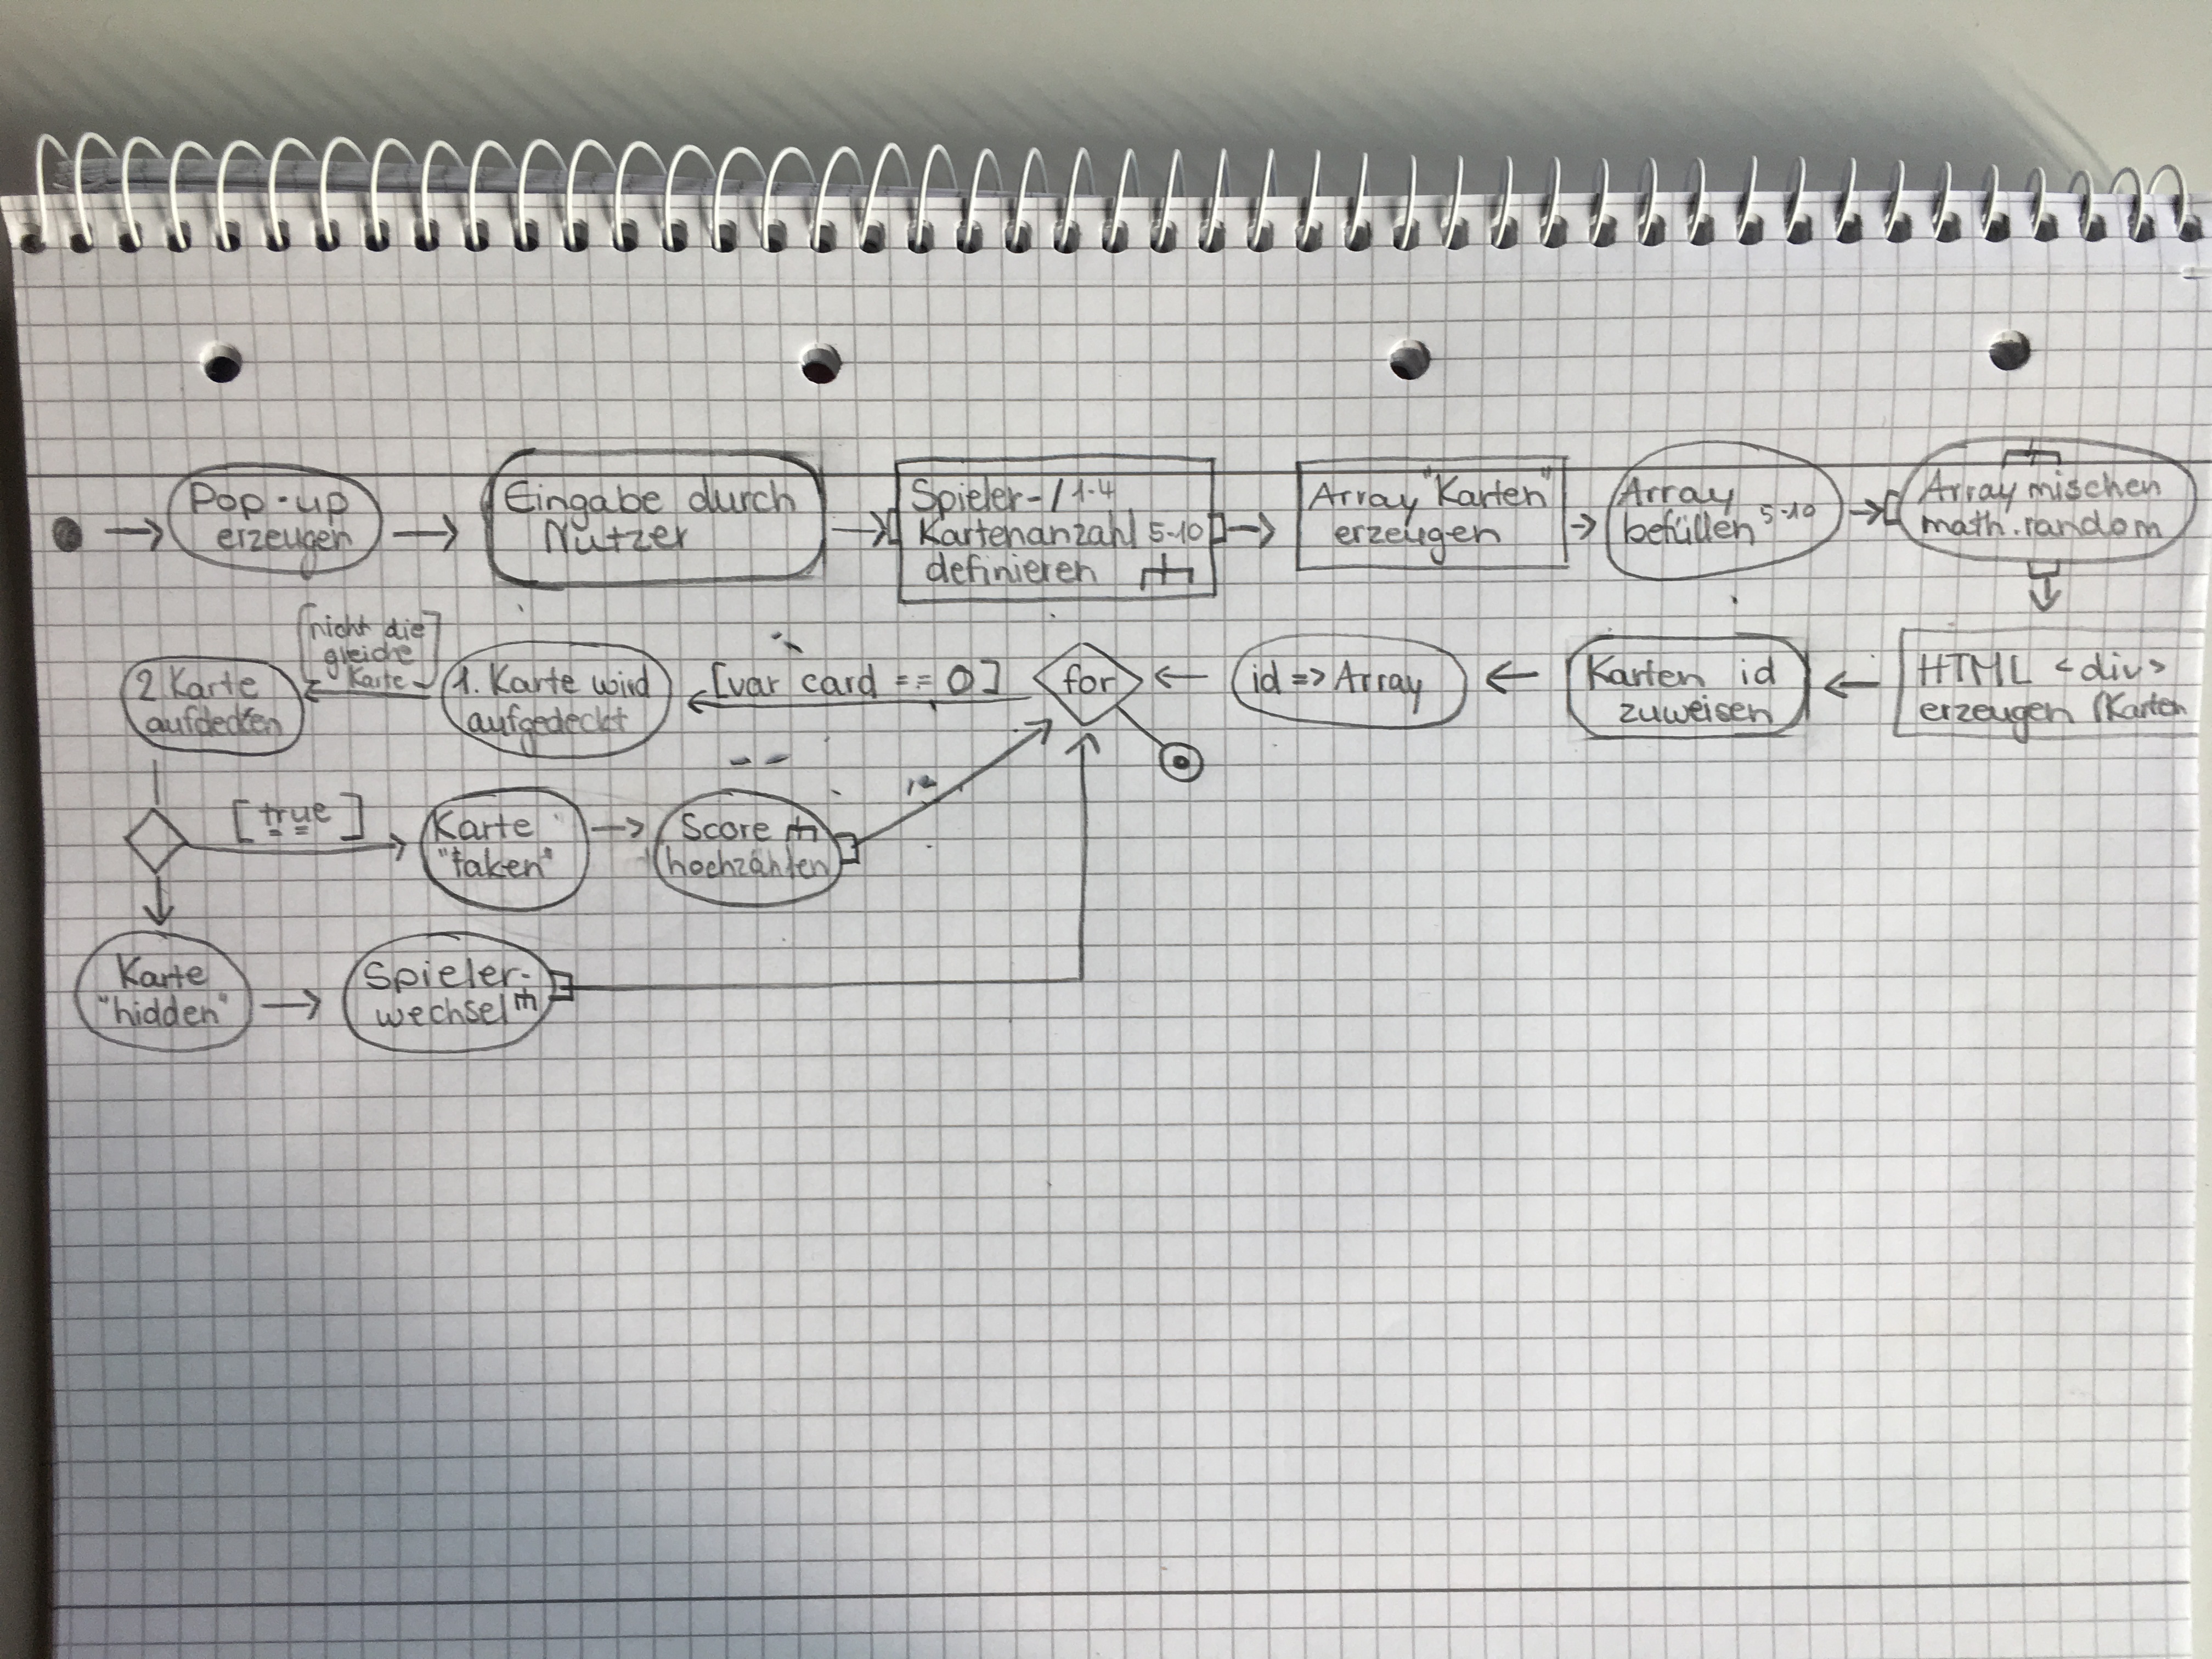 Pop-up
erzeugen
Eingabe durch
Nutzer
Spieler-/ 1-4
Kartenanzahl 5-10
definieren
Array "Karten"
erzeugen
Array
befüllen 5-10
Array mischen
math.random
HTML <div>
erzeugen (Karten
Karten id
zuweisen
id => Array
for
[var card == 0]
1. Karte wird
aufgedeckt
[nicht die
gleiche
Karte]
2 Karte
aufdecken
[true]
Karte
"taken"
Score
hochzählen
Karte
"hidden"
Spieler-
wechsel